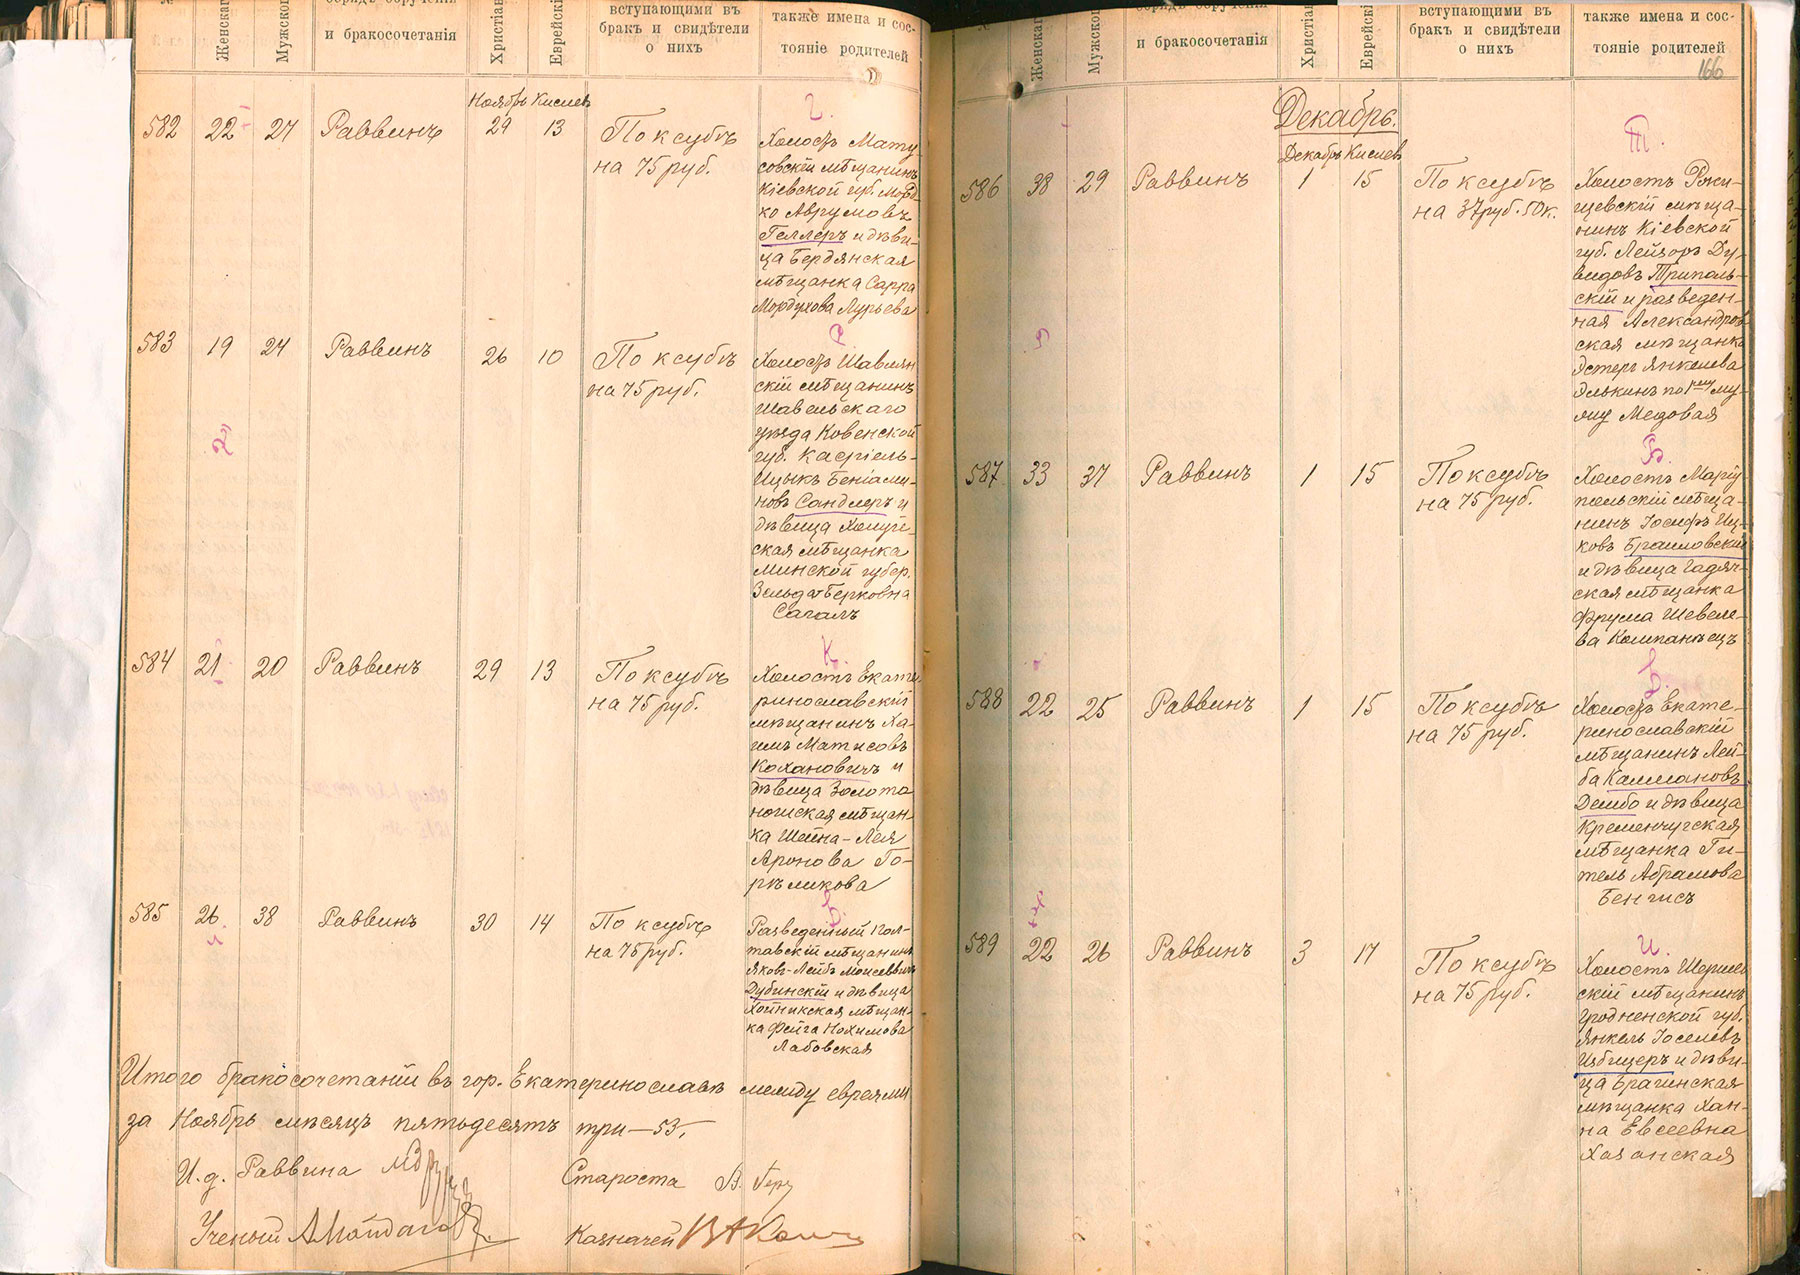 Женскаго
Мужского
обрядъ обрученія
и бракосочетанія
Христіан
Еврейскі
вступающими въ
бракъ и свидѣтели
о нихъ
также имена и сос-
тояніе родителей
Ноябрь Кислев
582 22 27 Раввинъ 29 13
По ксубѣ
на 75 руб.
Г.
Холостъ Мату
совскій мѣщанинъ
Кіевской губ. Морд-
ко Аврумовъ
Геллеръ и дѣви-
ца Бердянская
мѣщанка Сарра
Мордухова Лурьева
583 19 24 Раввинъ 26 10
По ксубѣ
на 75 руб.
Холостъ Шавлян
скій мѣщанинъ
Шавельскаго
уѣзда Ковенской
губ. Касріель-
Ицыкъ Беніами-
новъ Сандлеръ и
дѣвица Холуй-
ская мѣщанка
Минской губер.
Зельда Берковна
Сагалъ
584 21 20 Раввинъ 29 13
По ксубѣ
на 75 руб.
К.
Холостъ Екате
ринославскій
мѣщанинъ Ха-
имъ Матисовъ
Кохановичъ и
дѣвица Золото
ношская мѣщан-
ка Шейна-Лея
Аронова Го-
рѣликова
585 26 38 Раввинъ 30 14
По ксубѣ
на 75 руб.
Разведенный Пол-
тавскій мѣщанинъ
Яковъ-Лейбъ Моисеевичъ
Дубинскій и дѣвица
Хойникская мѣщан-
ка Фейга Нохимова
Лабовская
Итого бракосочетаній въ гор. Екатеринославѣ между евреями
за Ноябрь мѣсяцъ пятьдесятъ три—53.
И. д. Раввина
Староста
Ученый
Казначей
Женская
Мужского
обрядъ обрученія
и бракосочетанія
Христіан
Еврейскі
вступающими въ
бракъ и свидѣтели
о нихъ
также имена и сос-
тояніе родителей
166
Декабрь.
Декабрь Кислев
586 38 29 Раввинъ 1 15
По ксубѣ
на 37 руб. 50 к.
Т.
Холостъ Ржи-
щевскій мѣща-
нинъ Кіевской
губ. Лейзоръ Ду-
видовъ Триполь-
скій и разведен-
ная Александров-
ская мѣщанка
Эстеръ Янкелева
Элькинъ по 1му му-
жу Медовая
587 33 37 Раввинъ 1 15
По ксубѣ
на 75 руб.
Б.
Холостъ Маріу
польскій мѣща-
нинъ Іосифъ Иц-
ковъ Браиловскій
и дѣвица Гадяч-
ская мѣщанка
Фрума Шевеле-
ва Компанѣецъ
588 22 25 Раввинъ 1 15
По ксубѣ
на 75 руб.
Холостъ Екате-
ринославскій
мѣщанинъ Лей-
ба Калмановъ
Дембо и дѣвица
Кременчугская
мѣщанка Ги-
тель Абрамова
Бенгисъ
589 22 26 Раввинъ 3 17
По ксубѣ
на 75 руб.
И.
Холостъ Шерешев
скій мѣщанинъ
Гродненской губ.
Янкель Іоселевъ
Избицеръ и дѣви-
ца Брагинская
мѣщанка Хан-
на Евсеевна
Хазанская